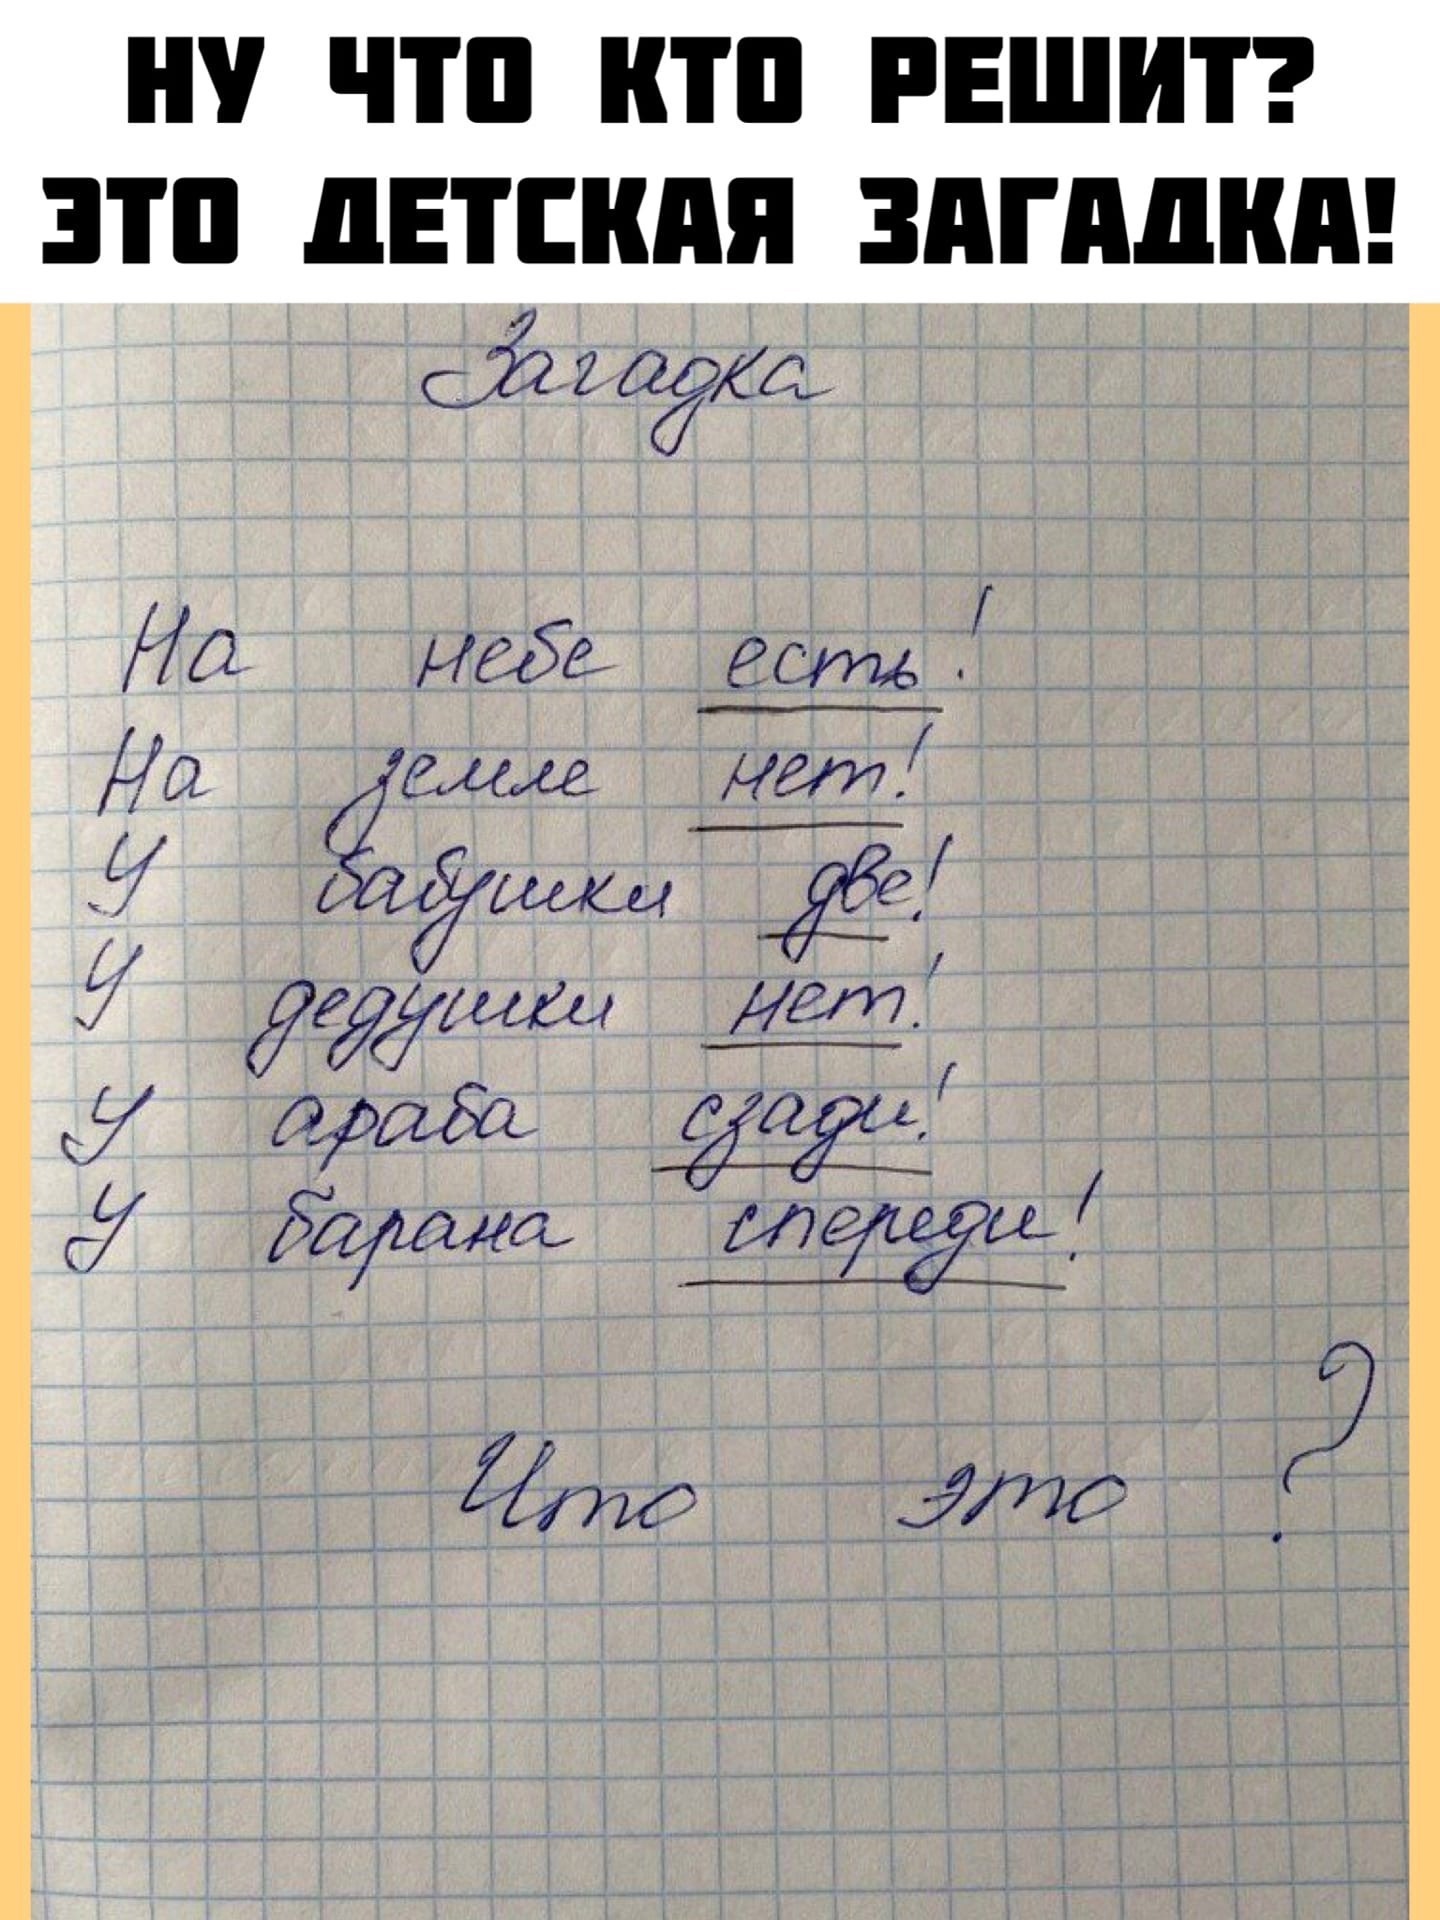 НУ ЧТО КТО РЕШИТ?
ЭТО ДЕТСКАЯ ЗАГАДКА!
Загадка
На небе есть!
На земле нет!
У бабушки две!
У дедушки нет!
У араба сзади!
У барана спереди!
Что это?